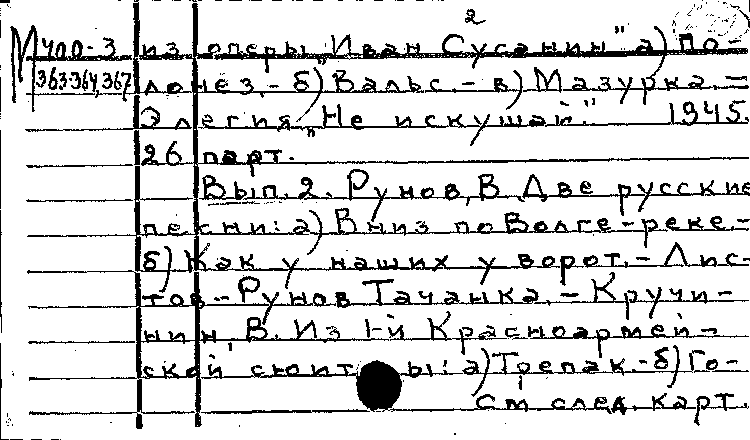 2
М400-3 из оперы „Иван Сусанин" а) По-
363364,367 лонез.- б) Вальс.- в) Мазурка. =
Элегия „Не искушай." 1945.
26 парт.
Вып. 2. Рунов, В. Две русские
песни: а) Вниз по Волге-реке.-
б) Как у наших у ворот.- Лис-
тов-Рунов Тачанка.- Кручи-
нин, В. Из 1-й Красноармей-
ской сюиты: а) Трепак.-б) Го-
См след. карт.